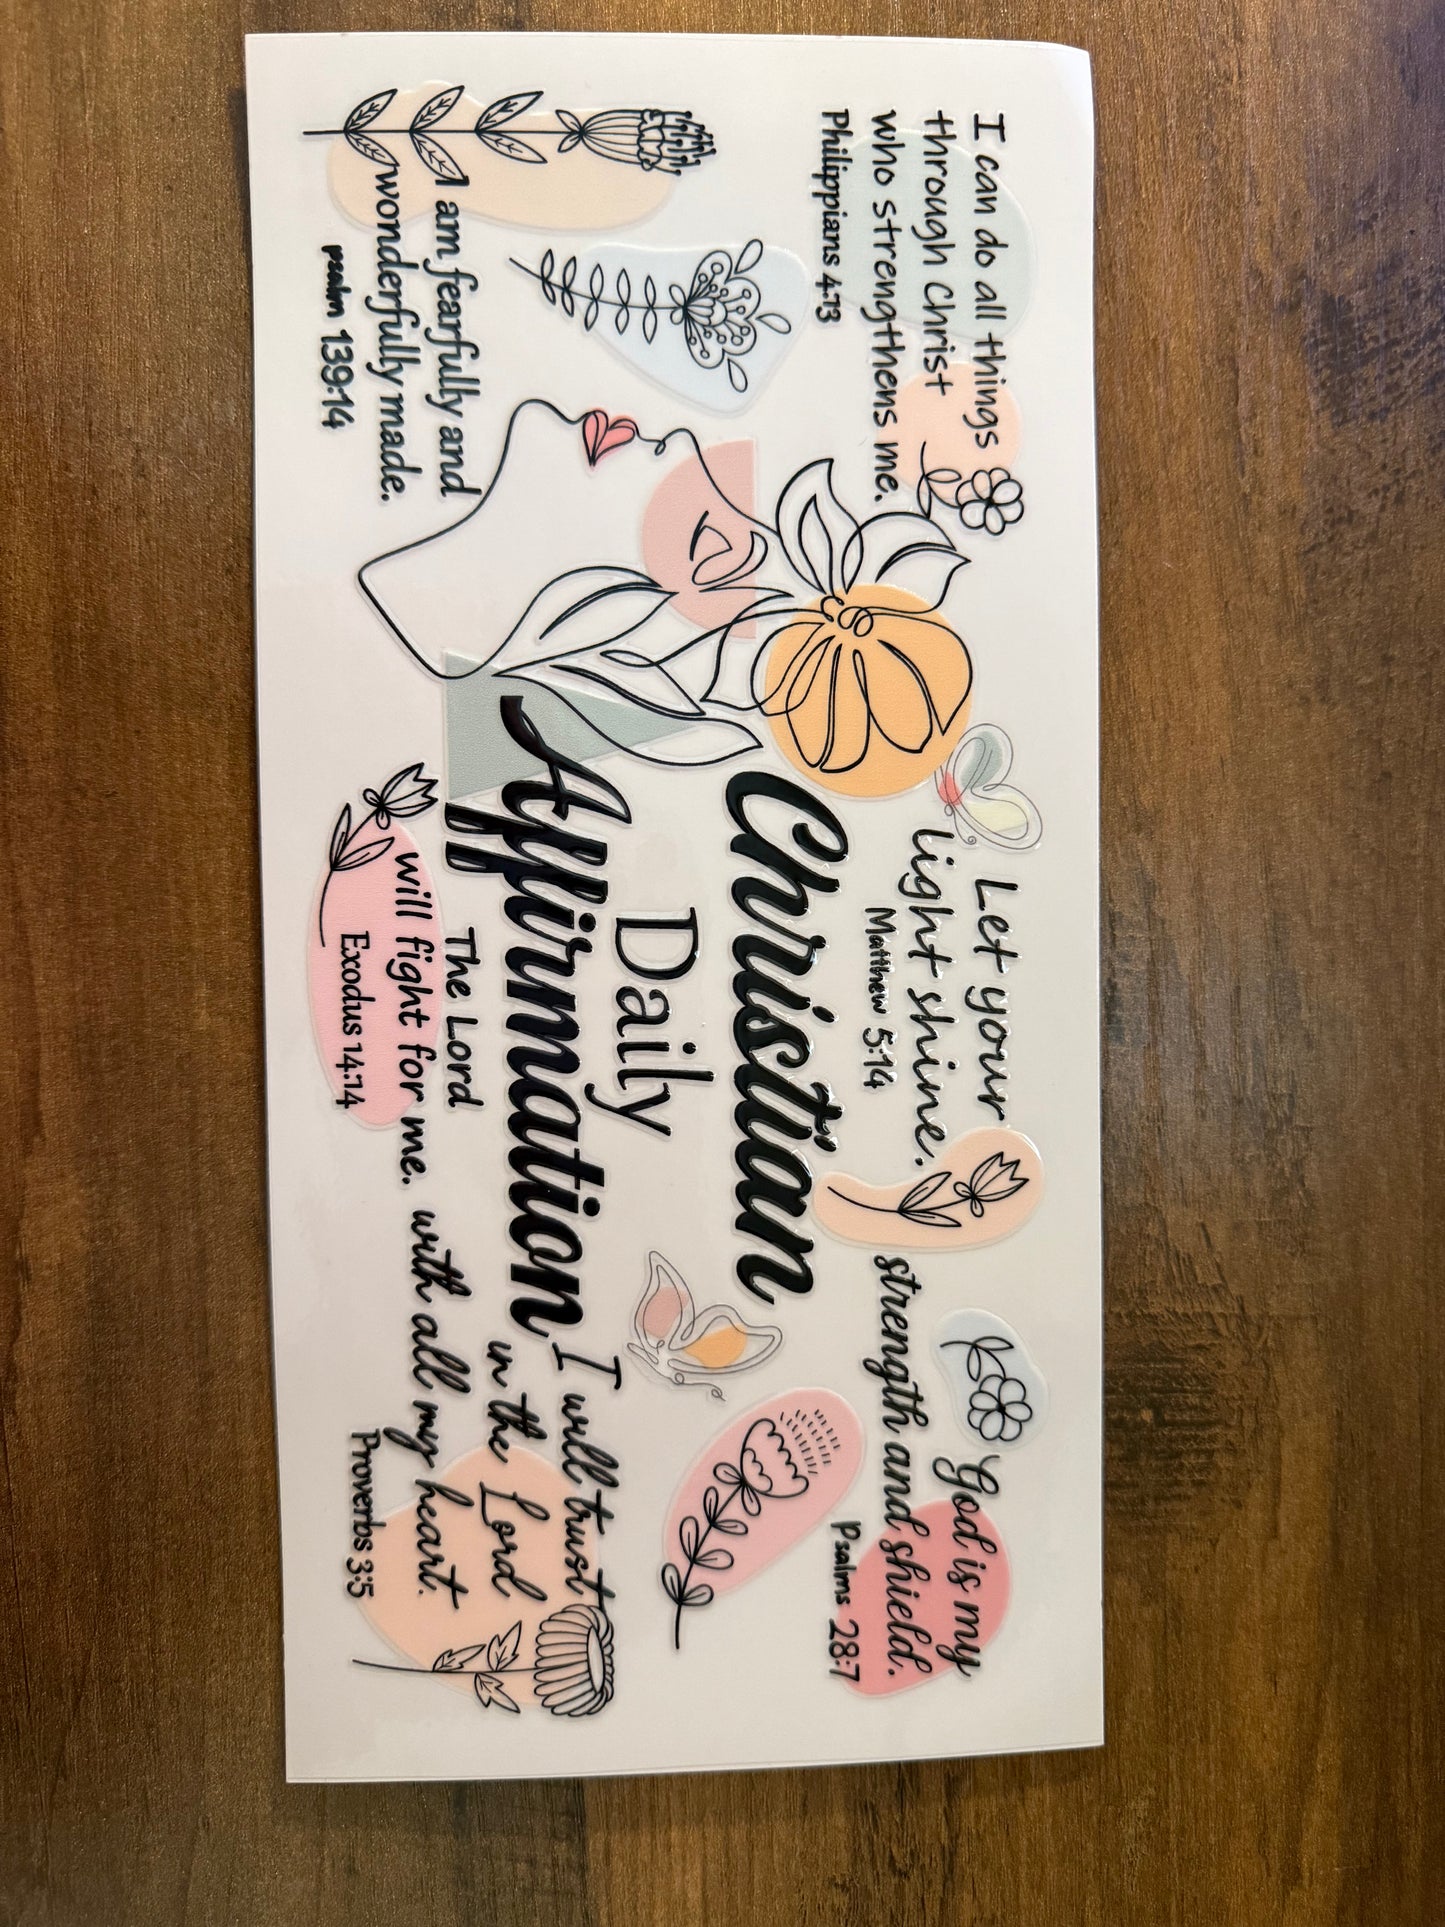 I can do all things
through Christ
who strengthens me.
Philippians 4:13
Let your
light shine.
Matthew 5:14
God is my
strength and shield.
Psalms 28:7
Christian
Daily
Affirmation
I am fearfully and
wonderfully made.
psalm 139:14
The Lord
will fight for me.
Exodus 14:14
I will trust
in the Lord
with all my heart.
Proverbs 3:5